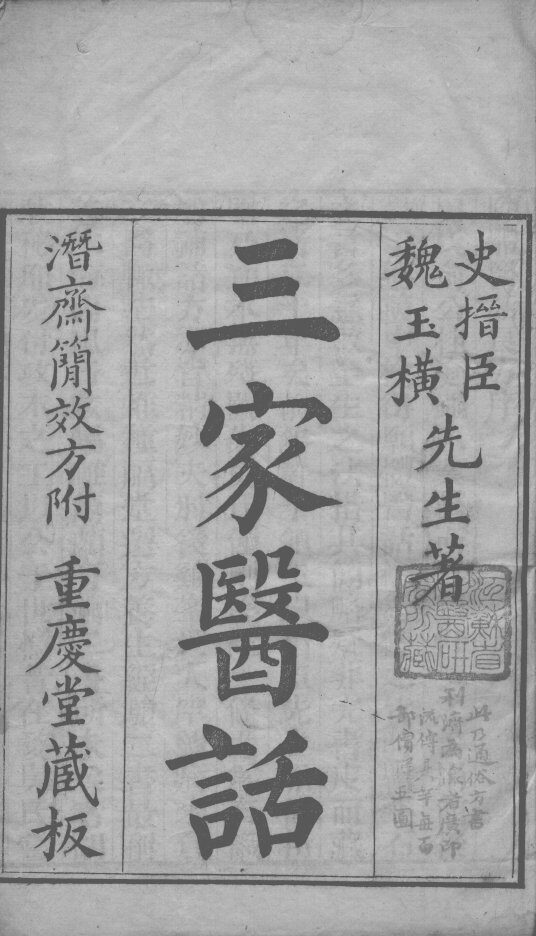 史搢臣
魏玉橫
先生著
三家醫話
潛齋簡效方附 重慶堂藏板
此乃通俗方書